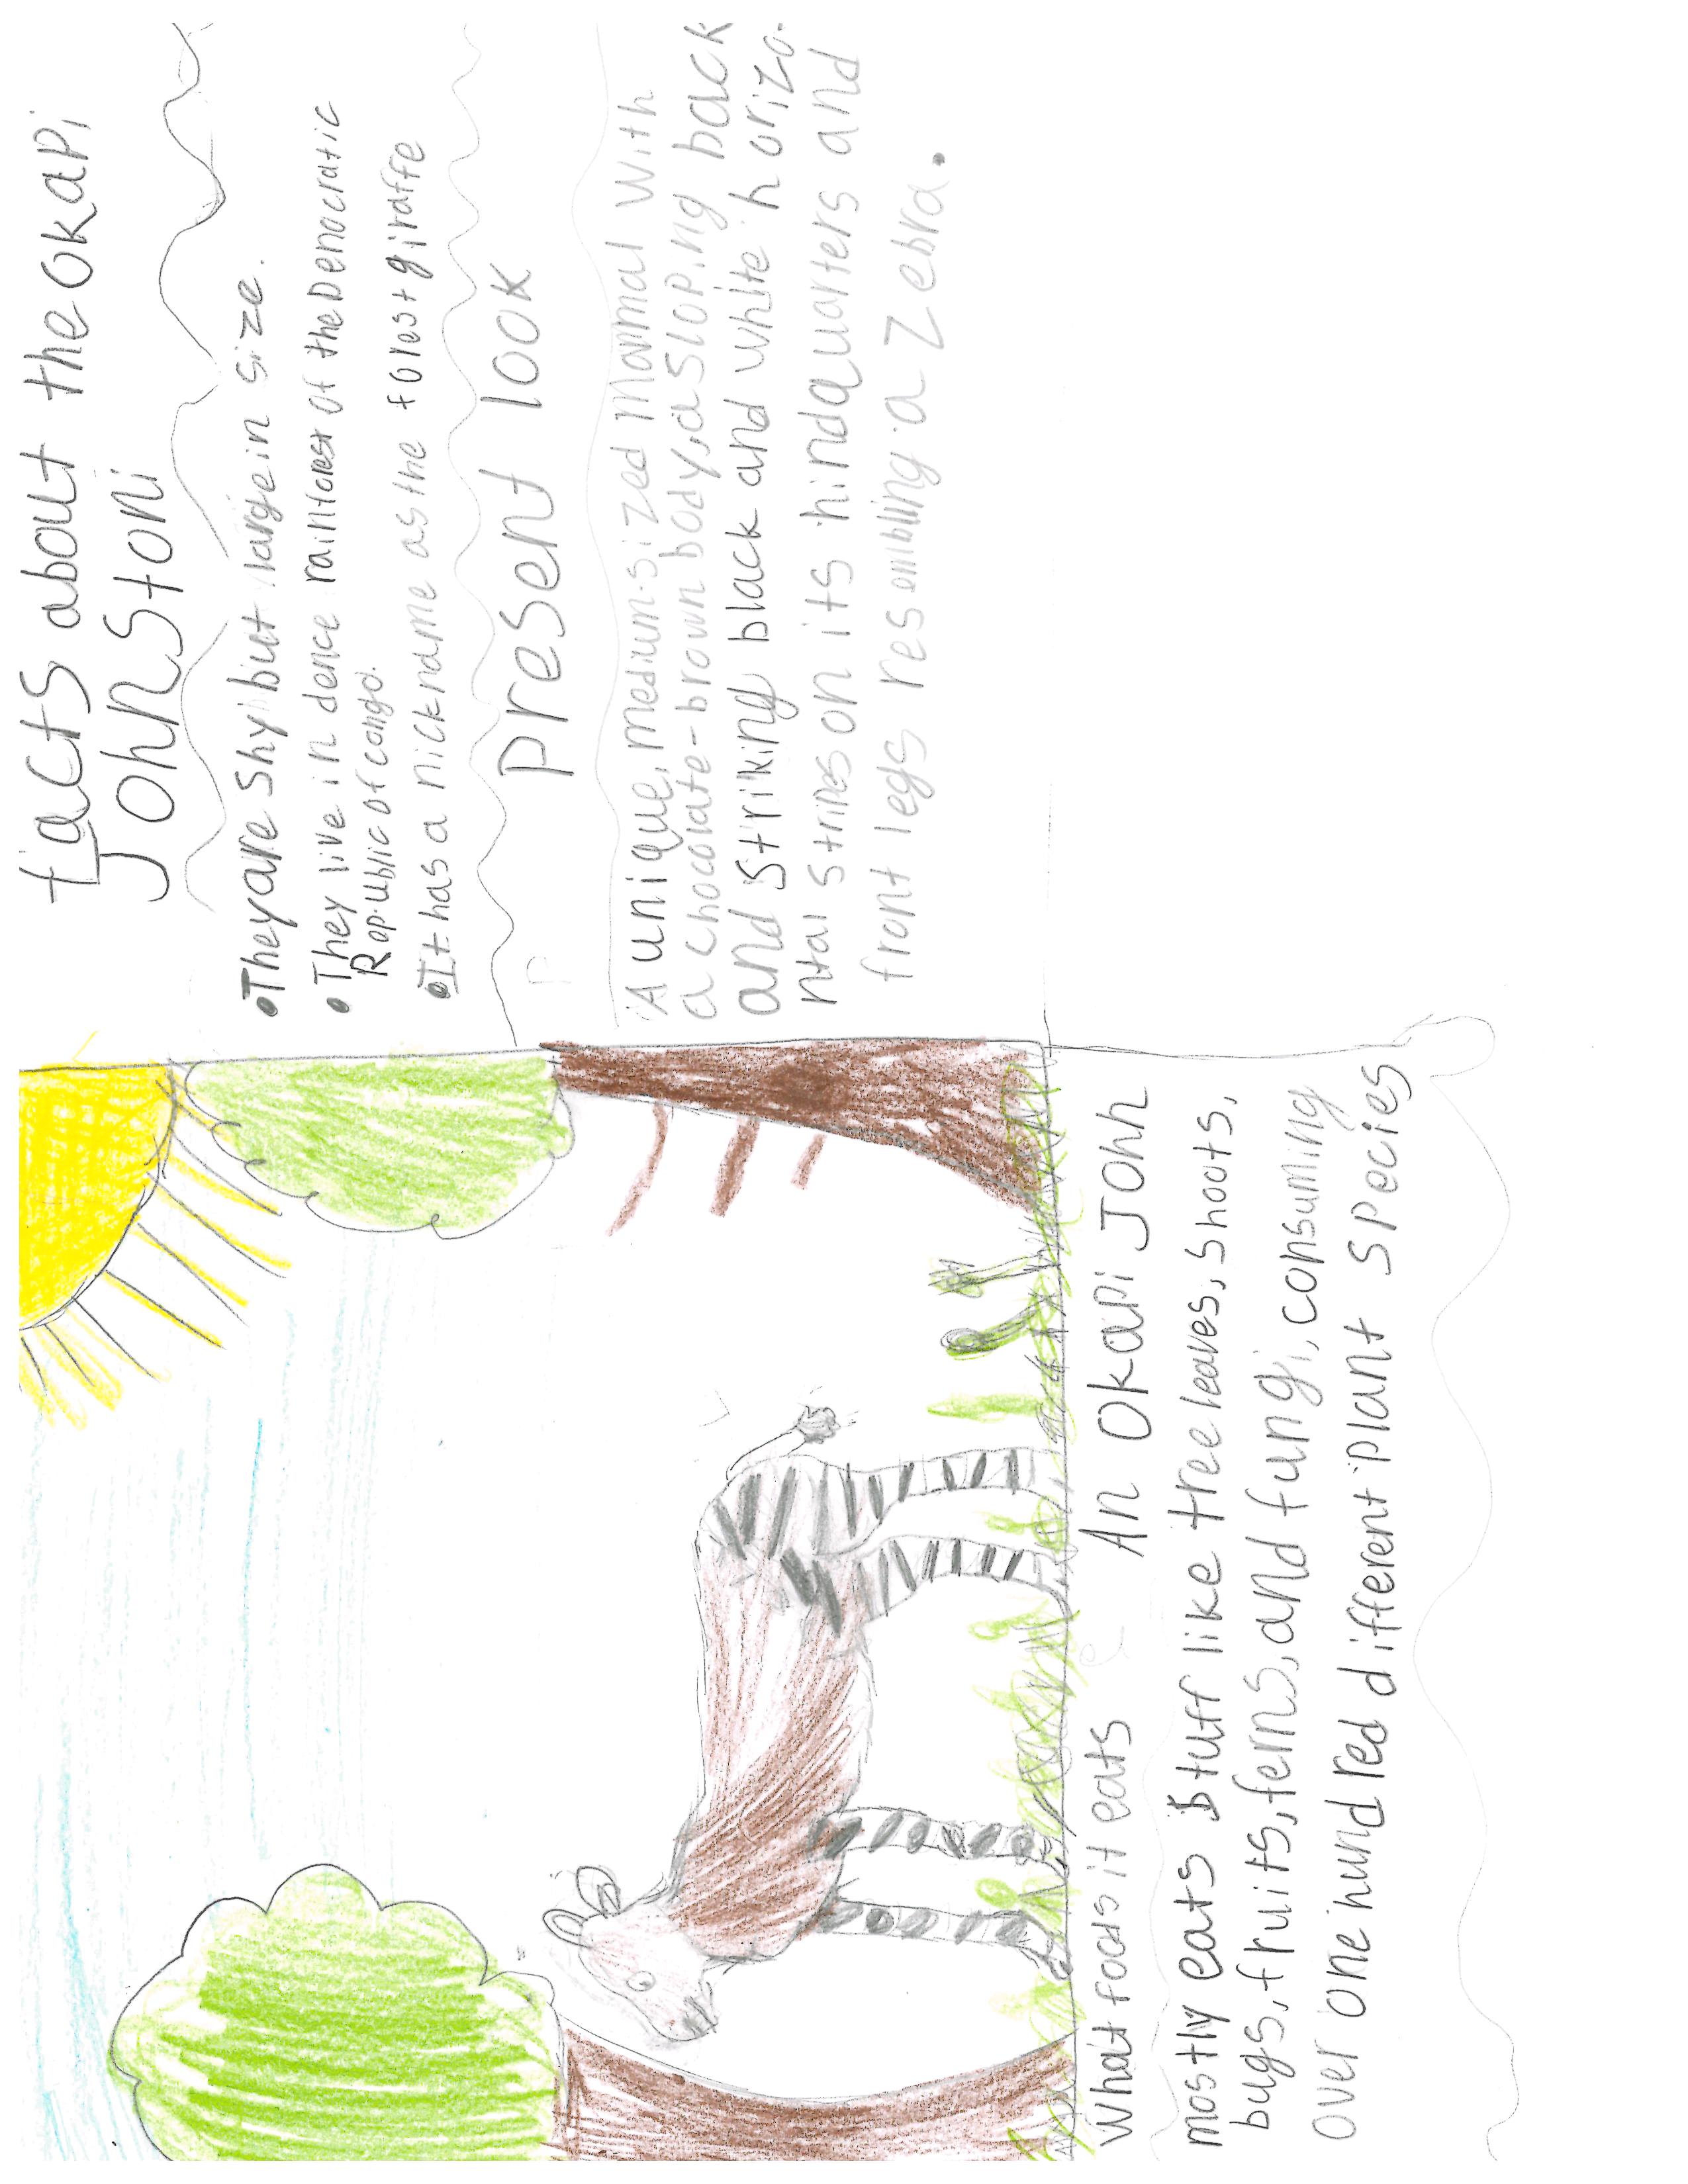 facts about the okapi
Johnstoni
• They are Shy but large in size.
• They live in dence rainforest of the Democratic
Ropublic of congo.
• It has a nickname as the forest giraffe
present look
A unique, medium-sized Mammal with
a chocolate-brown body, a sloping back
and striking black and white horizo-
ntal stripes on its hindquarters and
front legs resembling a Zebra.
What foods it eats An Okapi John
mostly eats stuff like tree leaves, shoots,
bugs, fruits, ferns, and fungi, consuming
over one hundred different plant species